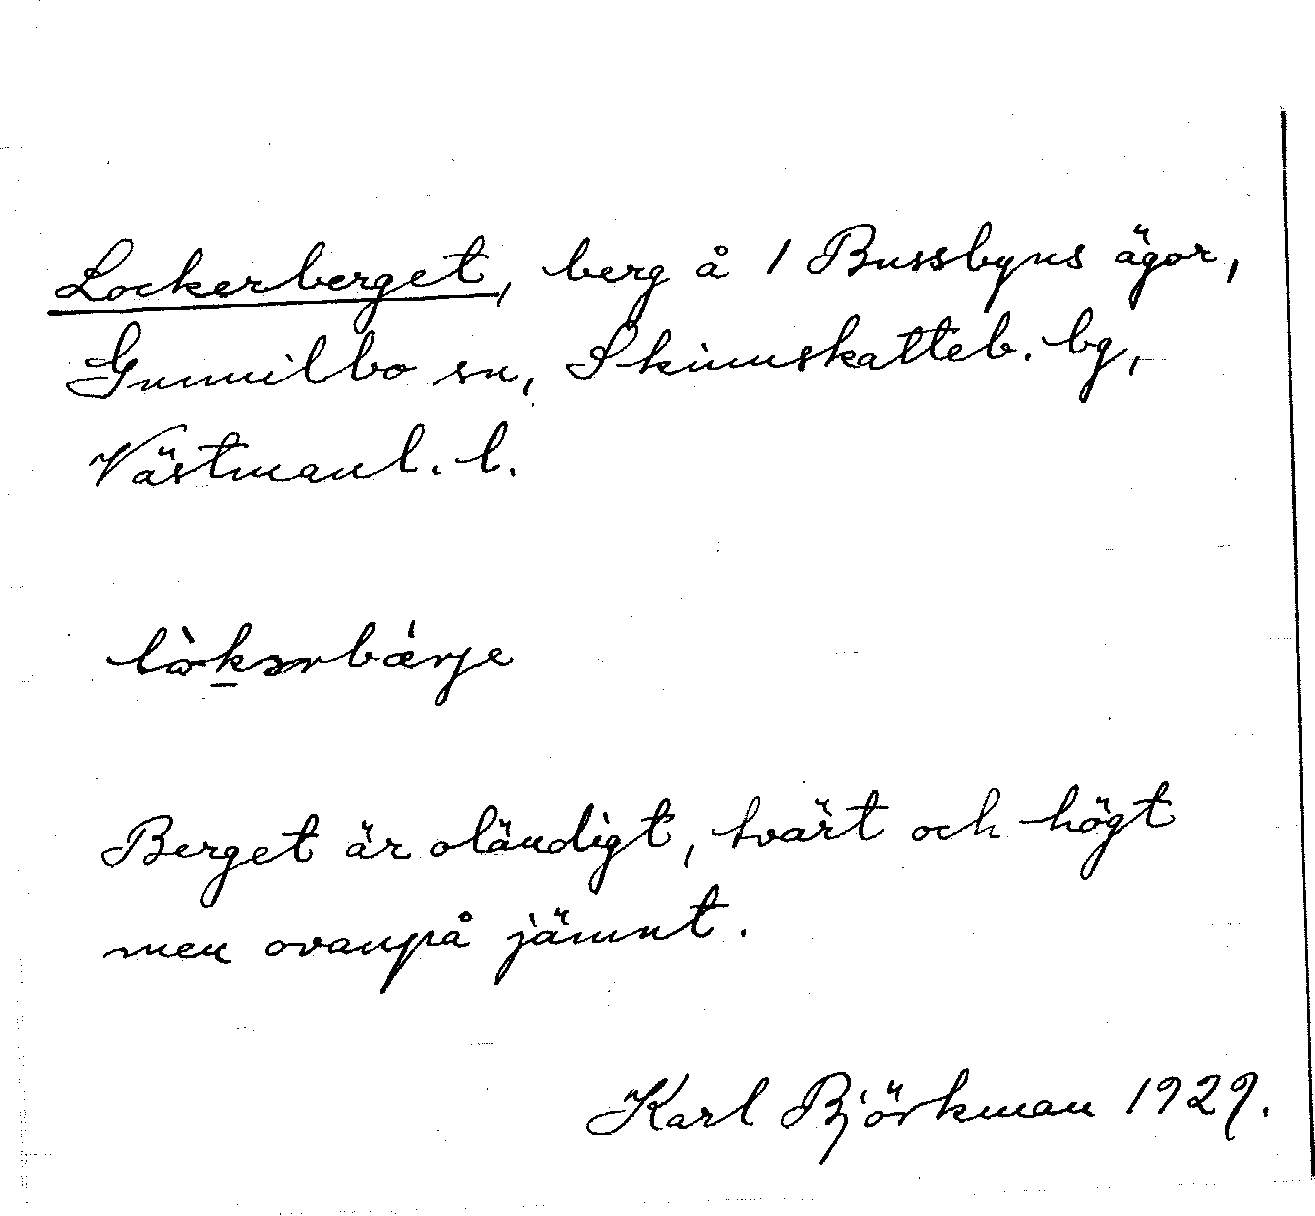 Lockerberget, berg å 1 Bussbyns ägor,
Gunnilbo sn, Skinnskatteb. bg,
Västmanl. l.
lòkərbǽrje
Berget är oländigt, tvärt och högt
men ovanpå jämnt.
Karl Björkman 1929.